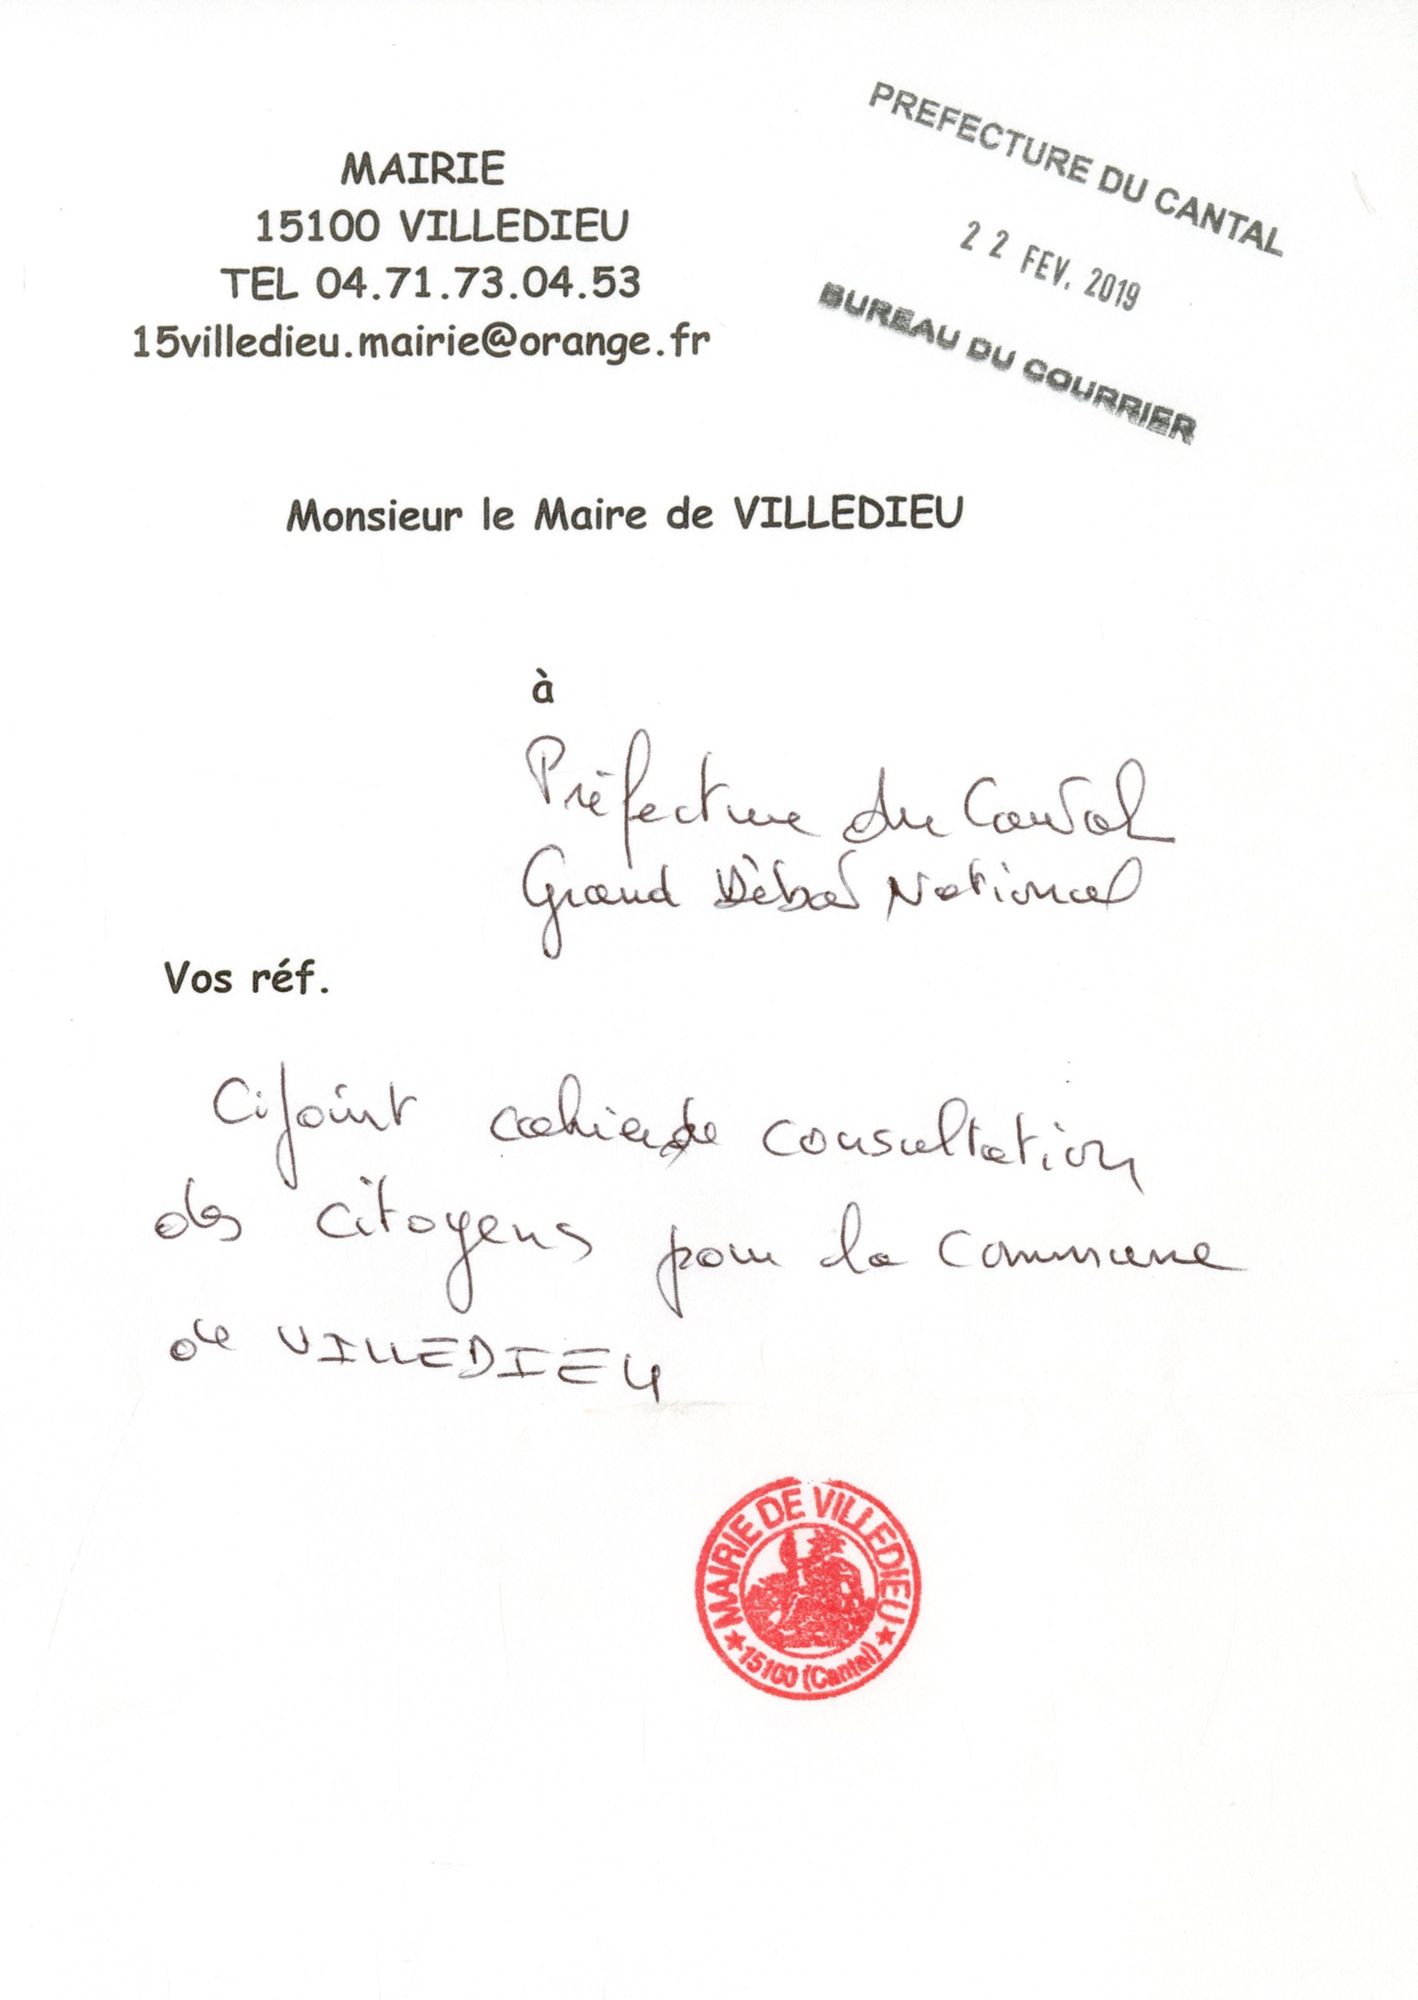 MAIRIE
15100 VILLEDIEU
TEL 04.71.73.04.53
15villedieu.mairie@orange.fr
PREFECTURE DU CANTAL
22 FEV. 2019
BUREAU DU COURRIER
Monsieur le Maire de VILLEDIEU
à
Préfecture du Cantal
Grand Débat National
Vos réf.
Ci joint cahier de consultation
des citoyens pour la commune
de VILLEDIEU
MAIRIE DE VILLEDIEU
★ 15100 (Cantal) ★